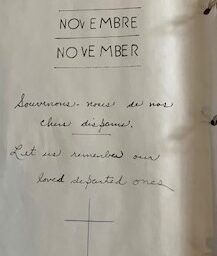 NOVEMBRE
NOVEMBER
Souvenons-nous de nos
chers disparus.
Let us remember our
loved departed ones